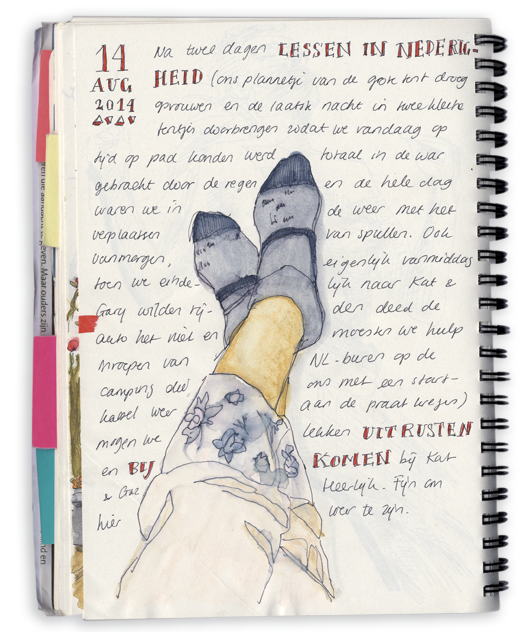 14 AUG 2014
Na twee dagen LESSEN IN NEDERIG-
HEID (ons plannetje van de grote tent droog
opvouwen en de laatste nacht in twee kleine
tentjes doorbrengen zodat we vandaag op
tijd op pad konden werd totaal in de war
gebracht door de regen en de hele dag
waren we in de weer met het
verplaatsen van spullen. Ook
vanmorgen, eigenlijk vanmiddag
toen we einde- lijk naar Kat &
Gary wilden rij- den deed de
auto het niet en moesten we hulp
inroepen van NL-buren op de
camping die ons met een start-
kabel weer aan de praat kregen)
mogen we lekker UITRUSTEN
en BIJ KOMEN bij Kat
& Gaz Heerlijk. Fijn om
hier weer te zijn.